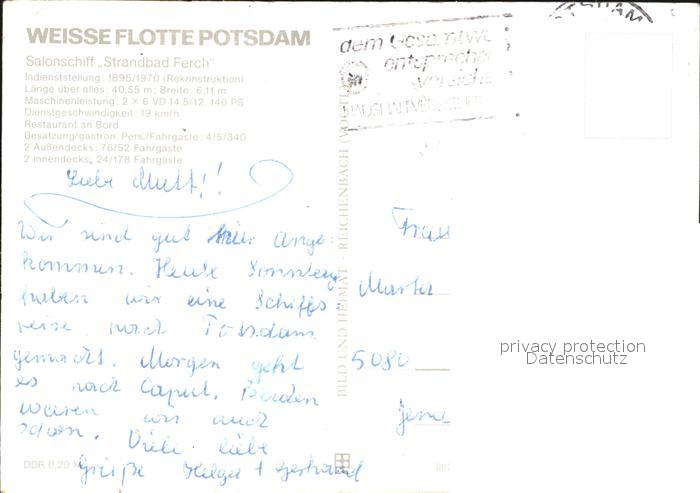 WEISSE FLOTTE POTSDAM
Salonschiff „Strandbad Ferch"
Indienststellung: 1895/1970 (Rekonstruktion)
Länge über alles: 40,55 m; Breite: 6,11 m
Maschinenleistung: 2 × 6 VD 14,5/12, 140 PS
Dienstgeschwindigkeit: 19 km/h
Restaurant an Bord
Besatzung/gastron. Pers./Fahrgäste: 4/5/340
2 Außendecks: 76/52 Fahrgäste
2 Innendecks, 24/178 Fahrgäste
Liebe Mutt!!
Wir sind gut hier ange-
kommen. Heute Sonntag
haben wir eine Schiffs-
reise nach Potsdam
gemacht. Morgen geht
es nach Caput.
waren wir auch
schon. Viele liebe
Grüße Helga + Gertraud
DDR 0,20 M
BILD UND HEIMAT · REICHENBACH (VOGTL
dem Gesamtw
entspreche
Frau
Marta
5080
privacy protection
Datenschutz